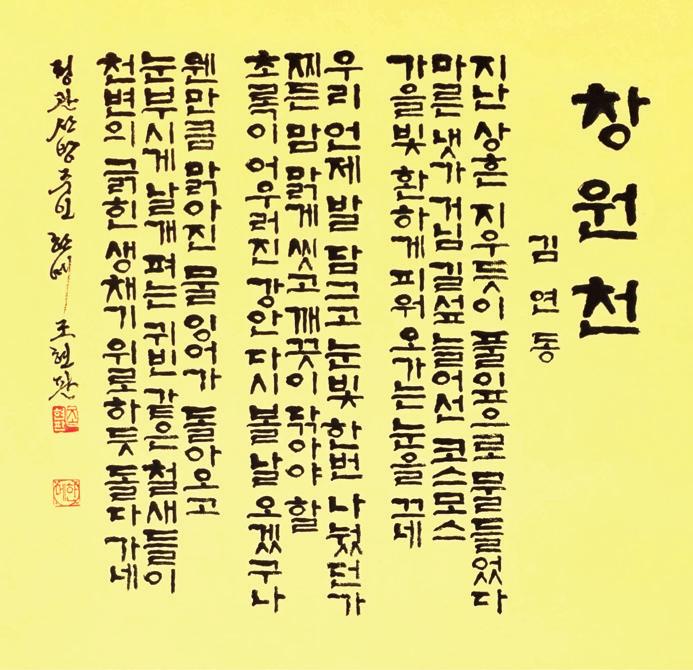 창원천
김연동
지난 상흔 지우듯이 풀잎으로 물들었다
마른 냇가 거님길섶 늘어선 코스모스
가을빛 환하게 피워 오가는 눈을 끄네
우리 언제 발 담그고 눈빛 한번 나눴던가
찌든 맘 맑게 씻고 깨끗이 닦아야 할
초록이 어우러진 강안 다시 볼 날 오겠구나
웬만큼 맑아진 물 잉어가 돌아오고
눈부시게 날개 펴는 귀빈 같은 철새들이
천변의 긁힌 생채기 위로하듯 돌다 가네
정관산방주인 한메 조현판
조현판
한메